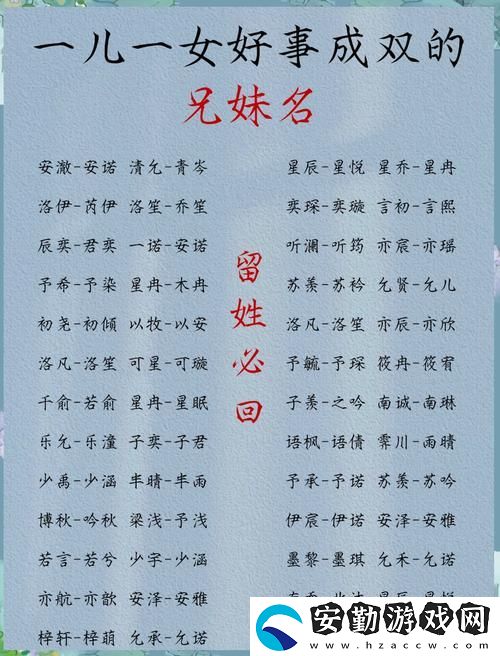 一儿一女好事成双的
兄妹名
安澈-安诺 清允-青岑
洛伊-芮伊 洛笙-乔笙
辰奕-君奕 一诺-安诺
予希-予染 星冉-木冉
初尧-初倾 以牧-以安
洛凡-洛笙 可星-可璇
千俞-若俞 星冉-星眠
乐允-乐潼 子奕-子君
少禹-少涵 半晴-半雨
博秋-吟秋 梁浅-予浅
若言-若兮 少宇-少涵
亦航-亦歆 安泽-安雅
梓轩-梓萌 允承-允诺
留姓必回
星辰-星悦 星乔-星冉
奕琛-奕璇 言初-言熙
听澜-听筠 亦宸-亦瑶
苏羡-苏衿 允贤-允儿
洛凡-洛笙 亦辰-亦欣
予毓-予琛 筱冉-筱宥
子羡-之吟 南诚-南琳
语枫-语倩 霁川-雨晴
予承-予诺 苏羡-苏吟
伊宸-伊诺 安泽-安雅
墨黎-墨琪 允禾-允诺
安勤游戏网
www.hzaccw.com